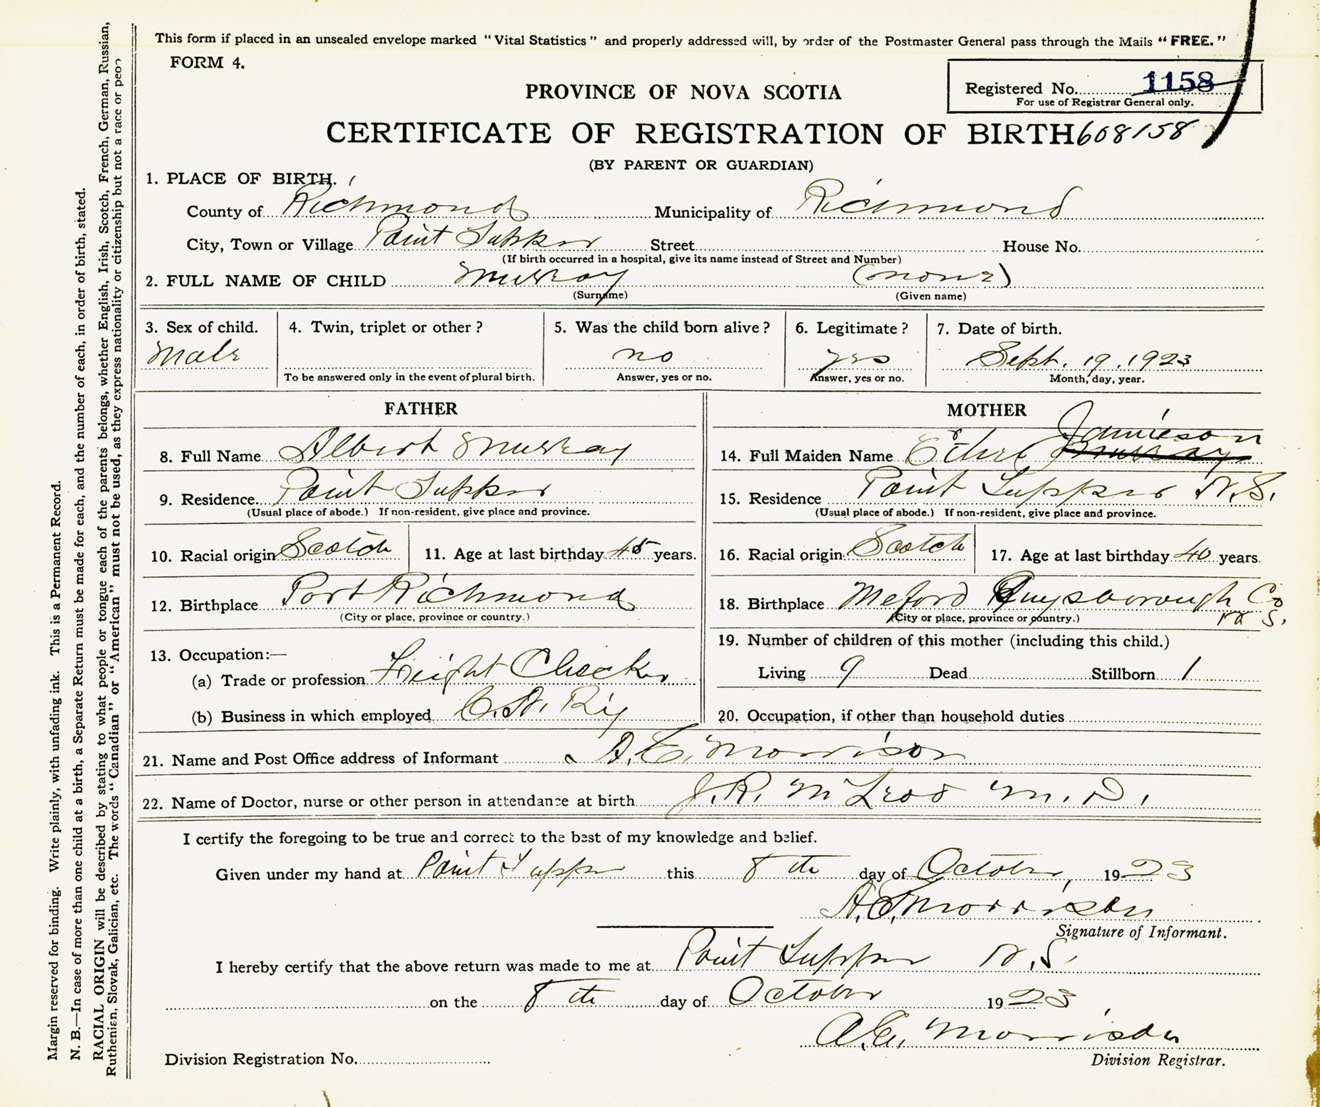 This form if placed in an unsealed envelope marked "Vital Statistics" and properly addressed will, by order of the Postmaster General pass through the Mails "FREE."
FORM 4.
Registered No. 1158
For use of Registrar General only.
PROVINCE OF NOVA SCOTIA
CERTIFICATE OF REGISTRATION OF BIRTH 608158
(BY PARENT OR GUARDIAN)
1. PLACE OF BIRTH.
County of Richmond Municipality of Richmond
City, Town or Village Point Tupper Street House No.
(If birth occurred in a hospital, give its name instead of Street and Number)
2. FULL NAME OF CHILD Murray (none)
(Surname) (Given name)
3. Sex of child. 4. Twin, triplet or other? 5. Was the child born alive? 6. Legitimate? 7. Date of birth.
Male no yes Sept. 19, 1923
To be answered only in the event of plural birth. Answer, yes or no. Answer, yes or no. Month, day, year.
FATHER
8. Full Name Albert Murray
9. Residence. Point Tupper
(Usual place of abode.) If non-resident, give place and province.
10. Racial origin Scotch 11. Age at last birthday 45 years.
12. Birthplace Port Richmond
(City or place, province or country.)
13. Occupation:—
(a) Trade or profession Freight Checker
(b) Business in which employed C.N. Ry
MOTHER
Jamieson
14. Full Maiden Name Ethel Murray
15. Residence Point Tupper N.S.
(Usual place of abode.) If non-resident, give place and province.
16. Racial origin Scotch 17. Age at last birthday 40 years
18. Birthplace Meford Guysborough Co
N S.
(City or place, province or country.)
19. Number of children of this mother (including this child.)
Living 9 Dead Stillborn 1
20. Occupation, if other than household duties
21. Name and Post Office address of Informant A.E. Morrison
22. Name of Doctor, nurse or other person in attendance at birth J.R. McLeod M.D.
I certify the foregoing to be true and correct to the best of my knowledge and belief.
Given under my hand at Point Tupper this 8th day of October, 1923
A.E. Morrison
Signature of Informant.
I hereby certify that the above return was made to me at Point Tupper N.S.
on the 8th day of October 1923
A.E. Morrison
Division Registrar.
Division Registration No.
Margin reserved for binding. Write plainly, with unfading ink. This is a Permanent Record.
N. B.—In case of more than one child at a birth, a Separate Return must be made for each, and the number of each, in order of birth, stated.
RACIAL ORIGIN will be described by stating to what people or tongue each of the parents belongs, whether English, Irish, Scotch, French, German, Russian,
Ruthenian, Slovak, Galician, etc. The words "Canadian" or "American" must not be used, as they express nationality or citizenship but not a race or peop